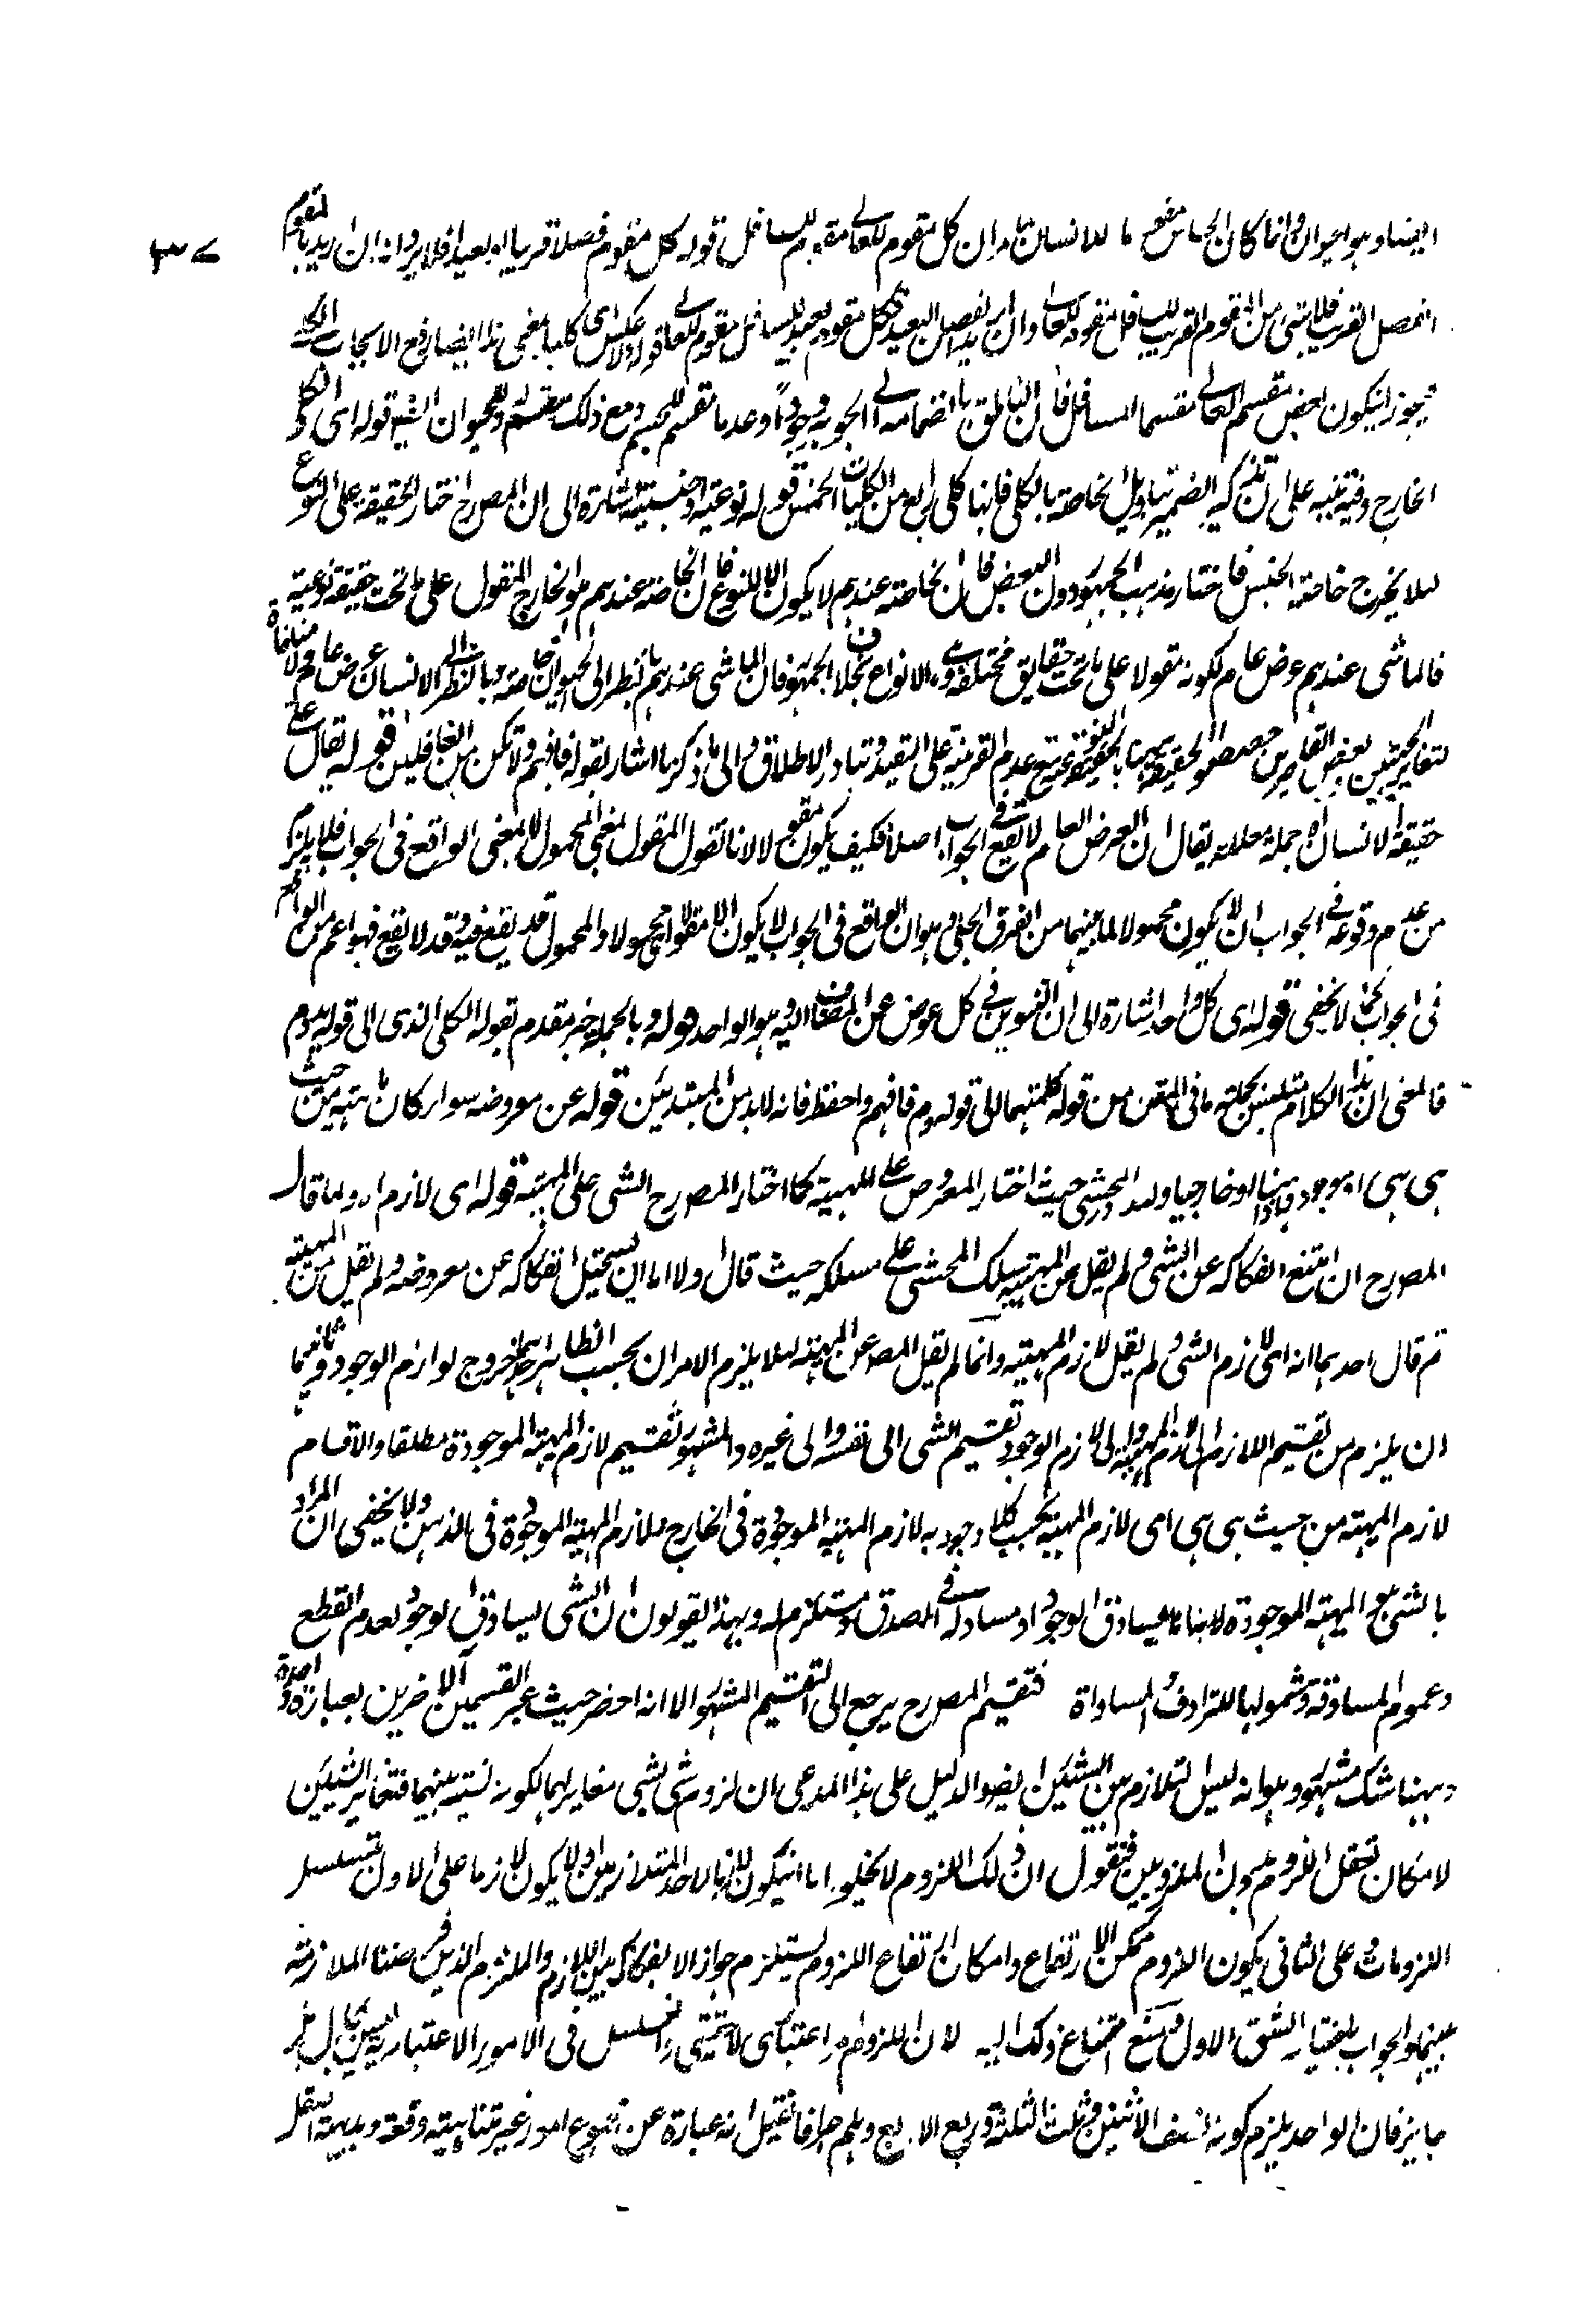 ٣٧
ايضا وهو الحيوان وانما كان الحساس مقوما للانسان بناء ان كل مقوم للعالي مقوم للسافل قوله كل مقوم فصلا قريبا او بعيدا فلا يرد انه ان اريد بالمقوم
الفصل القريب فلا شيء من المقوم القريب للسافل مقوم للعالي وان اريد الفصل البعيد فكل مقوم بعيد للسافل مقوم للعالي قوله ولا عكس اي كليا بمعنى هذا ايضا رفع الايجاب الكلي
فيجوز ان يكون بعض مقسم العالي مقسما للسافل فان الناطق بانضمامه الى الجوهر وجودا وعدما مقسم للجسم ومع ذلك مقسم للحيوان ايضا قوله اي الكلي
الخارج وفيه تنبيه على ان تذكير الضمير بتاويل الخاصة بالكلي فانها كلي رابع من الكليات الخمس قوله نوعية او جنسية اشارة الى ان المصرح اختار الحقيقة على النوع
لئلا يخرج خاصة الجنس فاختار مذهب الجمهور دون البعض فان الخاصة عندهم لا يكون الا للنوع فان الخاصة عندهم هو الخارج المقول على ما تحت حقيقة نوعية
فالماشي عندهم عرض عام لكونه مقولا على ما تحت حقايق مختلفة وهي الانواع بخلاف الجمهور فان الماشي عندهم بالنظر الى الحيوان خاصة وبالنظر الى الانسان عرض عام ولا منافاة
لتغاير الحيثيتين بعض القاصرين خصصوا الحقيقة ههنا بالحقيقة النوعية مع عدم القرينة على التقييد وتبادر الاطلاق والى ما ذكرنا اشار بقوله فافهم ولا تكن من الغافلين قوله يقال على
حقيقة الانسان اه جملة معللة يقال ان العرض العام لا يقع في الجواب اصلا فكيف يكون مقولا لانا نقول المقول بمعنى المحمول لا بمعنى الواقع في الجواب فلا يلزم
من عدم وقوعه في الجواب ان لا يكون محمولا لما بينهما من الفرق الجلي وهو ان الواقع في الجواب لا يكون الا مقولا محمولا والمحمول قد يقع فيه وقد لا يقع فهو اعم من الواقع
في الجواب كما لا يخفى قوله اي كل واحد اشارة الى ان التنوين في كل عوض عن المضاف اليه وهو الواحد قوله وبالجملة خبر مقدم بقوله الكلي الذي الى قوله يدوم
فالمعنى ان هذا الكلام متلبس بجملة ما في المتن من قوله كلمتهما الى قوله يدوم فافهم واحفظ فانه لا بد من المبتدئين قوله عن معروضه سواء كان ماهية من حيث
هي هي او موجودة ذهنيا او خارجيا ولله در المحشي حيث اختار المعروض على الماهية كما اختار المصرح الشيء على الماهية قوله اي لازم اه ولما قال
المصرح ان امتنع انفكاكه عن الشيء ولم يقل عن الماهية سلك المحشي على مسلكه حيث قال اولا اما ان يستحيل انفكاكه عن معروضه ولم يقل عن الماهية
ثم قال احدهما انه اي لازم الشيء ولم يقل لازم الماهية وانما لم يقل المص عن الماهية لئلا يلزم الامران بحسب الظاهر احدهما خروج لوازم الوجود وثانيهما
ان يلزم من تقسيم اللازم الى لازم الماهية والى لازم الوجود تقسيم الشيء الى نفسه والى غيره والمشهور تقسيم لازم الماهية الموجودة مطلقا والاقسام
لازم الماهية من حيث هي هي اي لازم الماهية بحسب كلا وجوديه لازم الماهية الموجودة في الخارج ولازم الماهية الموجودة في الذهن ولا يخفى ان المراد
بالشيء هو الماهية الموجودة لانها مما يساوق الوجود او مساو له في الصدق ومستلزم له وبهذا يقولون ان الشيء يساوق الوجود لعدم القطع
وعموم المساوقة وشمولها للترادف والمساواة فتقسيم المصرح يرجع الى التقسيم المشهور الا انه احضر حيث عبر القسمين الآخرين بعبارة واحدة
وههنا شك مشهور وهو انه ليس التلازم بين الشيئين ايضا والدليل على هذا المدعى ان لزوم شيء لشيء مغاير لهما لكونه نسبة بينهما فتغاير الشيئين
لامكان تعقل اللزوم بدون الملزومين فنقول ان ذلك اللزوم لا يخلو اما ان يكون لازما لاحد المتلازمين او لا يكون لازما على الاول تسلسل
اللزومات وعلى الثاني يكون اللزوم ممكن الارتفاع وامكان ارتفاع اللزوم يستلزم جواز الانفكاك بين اللازم والملزوم الذين فرضنا الملازمة
بينهما والجواب باختيار الشق الاول ومنع امتناع ذلك اليه لان اللزوم امر اعتباري لا تحقق له والتسلسل في الامور الاعتبارية ليس بمحال بل
جايز فان الواحد يلزم كونه نصف الاثنين وثلث الثلثة وربع الاربع وهلم جرا فما قيل انه عبارة عن تنوع امور غير متناهية دفعة وبديهة العقل